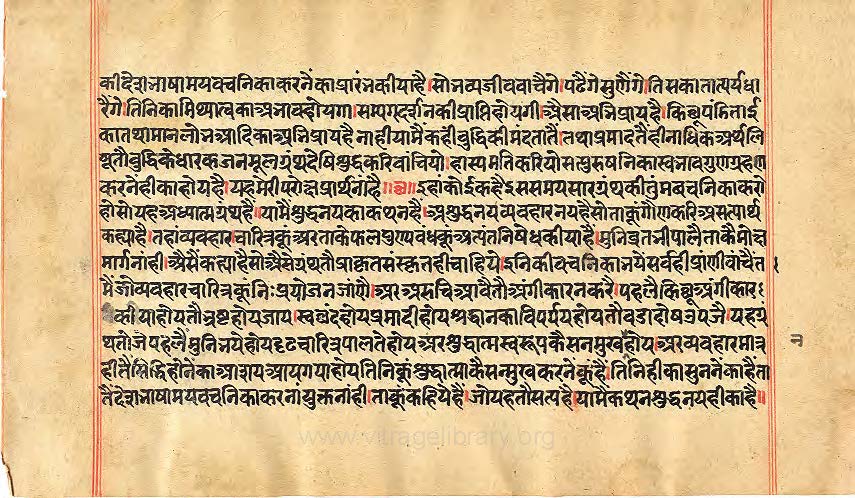 की देशभाषामय वचनिका करनेंका प्रारंभ कीया है। सो भव्य जीव वाचैंगे। पढैंगे सुणैंगे। तिसका तात्पर्य धा
रैंगे। तिनिका मिथ्यात्वका अभाव होयगा। सम्यग्दर्शनकी प्राप्ति होयगी। ऐसा अभिप्राय है। किछू पंडिताई
का तथा मान लोभ आदिका अभिप्राय है नाही। यामैं कही बुद्धिकी मंदतातैं। तथा प्रमादतैं हीनाधिक अर्थ लि
षूं तौ बुद्धिके धारक जन मूल ग्रंथ देषि शुद्ध करि वांचियो। हास्य मति करियो। सत्पुरुषनिका स्वभाव गुणग्रहण
करनेहीका होय है। यह मेरी परोक्ष प्रार्थनां है॥ छ॥ इहां कोई कहै इस समयसार ग्रंथकी तुंम वचनिका करो
हो सो यह अध्यात्म ग्रंथ है। यामैं शुद्धनयका कथन है। अशुद्धनय व्यवहारनय है सो ताकूं गौण करि असत्यार्थ
कह्या है। तहां व्यवहार चारित्रकूं अर ताके फल पुण्यबंधकूं अत्यंत निषेध कीया है। मुनिव्रत भी पालै ताकै मोक्ष
मार्ग नांही। ऐसैं कह्या है सो ऐसे ग्रंथ तौ प्राकृत संस्कृत ही चाहिये। इनिकी वचनिका भये सर्व ही प्राणी वांचै त
मैं जो व्यवहार चारित्रकूं निःप्रयोजन जांणे। अर अरुचि आवै तौ अंगीकार न करे। पहलै किछू अंगीकार
कीया होय तौ भ्रष्ट होय जाय। स्वछंद होय प्रमादी होय श्रद्धानका विपर्यय होय तौ बडा दोष उपजै। यह ग्रं
थ तौ जे पहलै मुनि भये होय दृढ चारित्र पालते होय अर शुद्धात्मस्वरूपकै सनमुख न होय। अर व्यवहारमात्र
हीतैं सिद्धि होनेका आशय आय गया होय तिनिकूं शुद्धात्माकै सन्मुख करनेकूं है। तिनिहीका सुननेका है। ता
तैं देशभाषामय वचनिका करनां युक्त नांही। ताकूं कहिये है। जो यह तौ सत्य है। यामैं कथन शुद्धनयहीका है॥
न
www.vitragelibrary.org